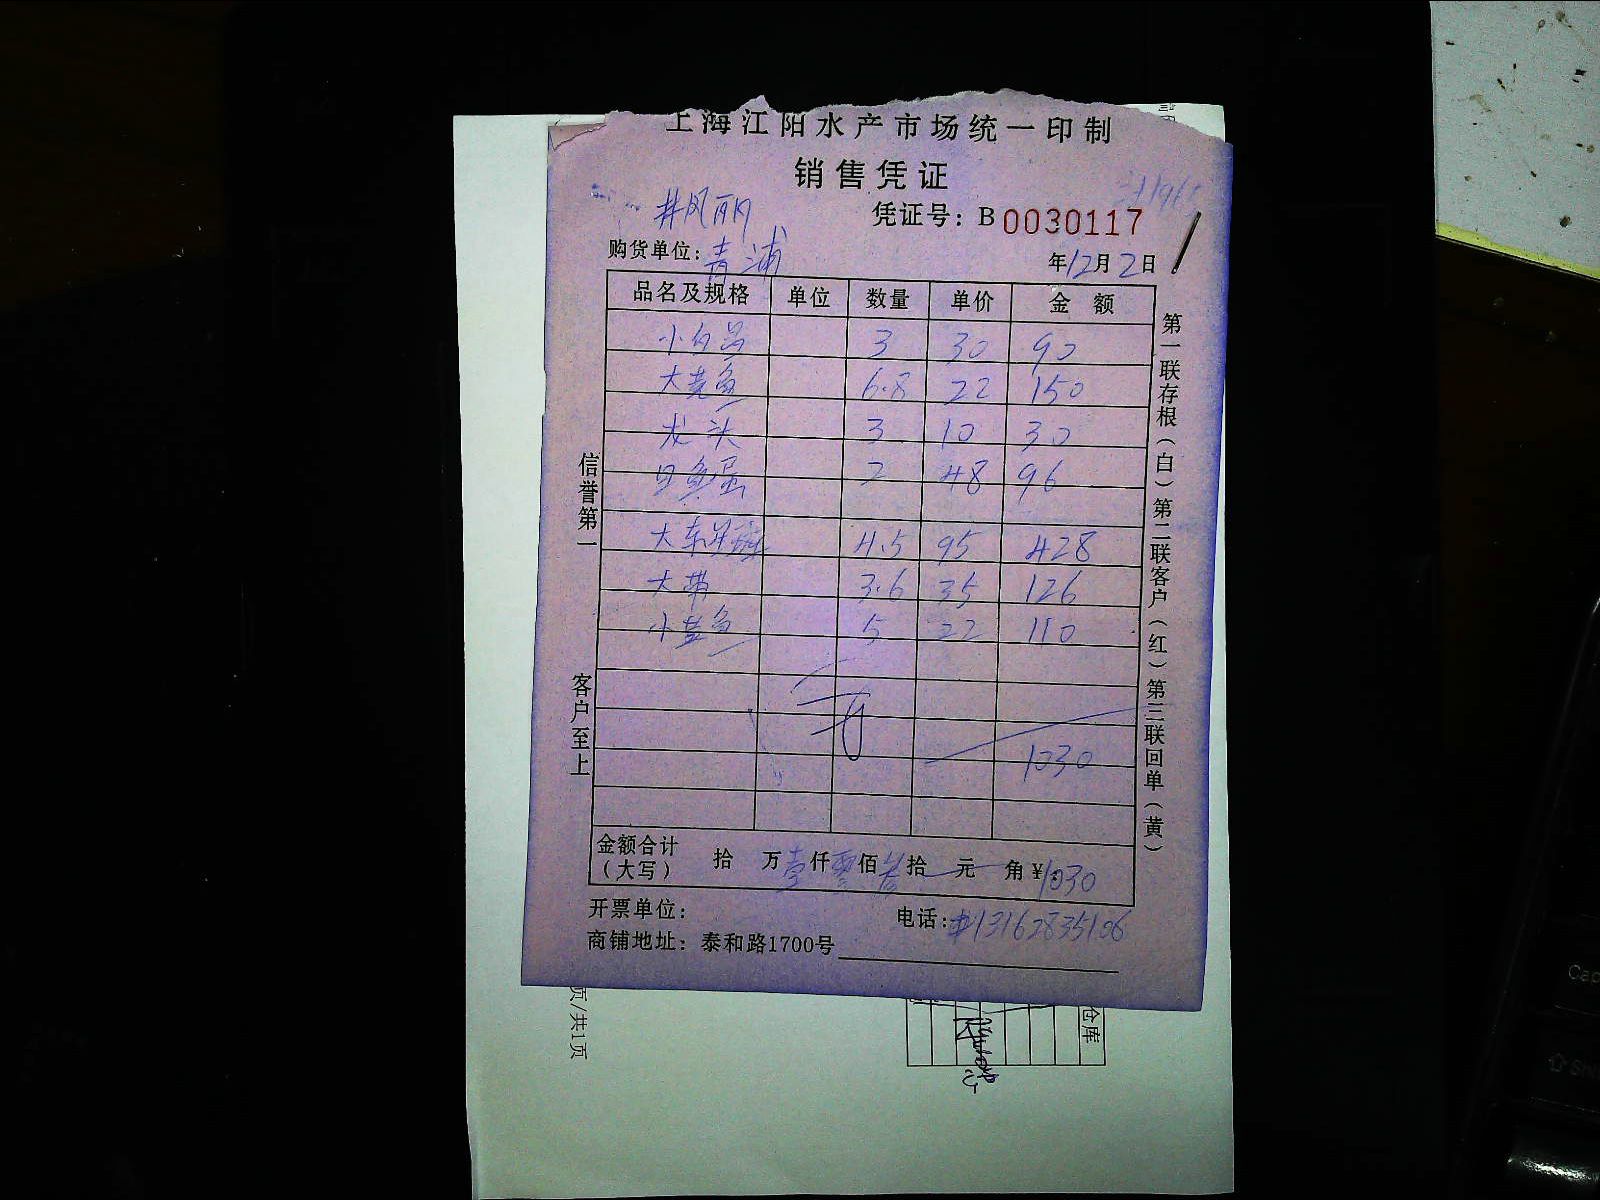 上海江阳水产市场统一印制
销售凭证
井风丽
凭证号：B 0030117
购货单位：青浦
年12月2日
品名及规格 单位 数量 单价 金额
3 30 90
大黄鱼 6.8 22 150
龙头 3 10 30
目鱼蛋 2 48 96
4.5 95 428
大带 3.6 35 126
小黄鱼 5 22 110
1030
金额合计（大写） 拾 万壹仟零佰叁拾 元 角¥：1030
开票单位：
电话：13162835106
商铺地址：泰和路1700号
信誉第一
客户至上
第一联存根（白）第二联客户（红）第三联回单（黄）
页/共1页
仓库